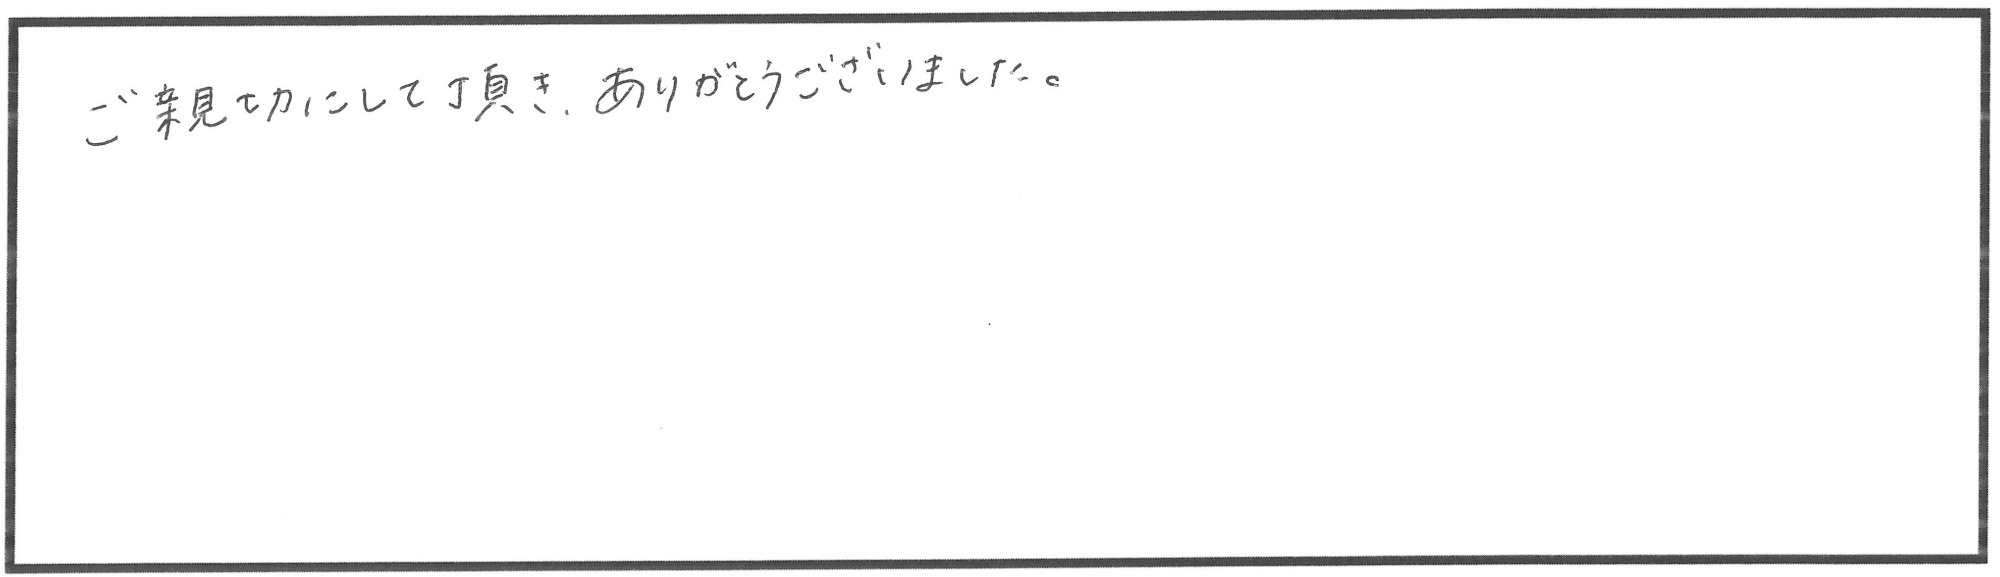 ご親切にして頂き、ありがとうございました。